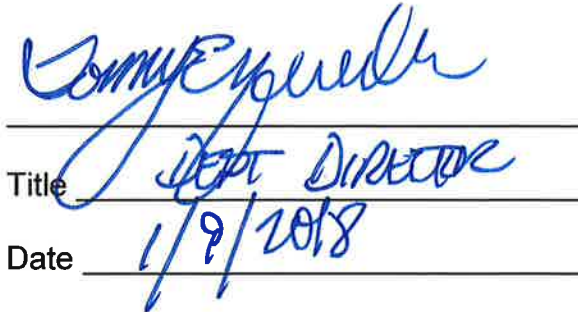 Title DEPT DIRECTOR
Date 1/9/2018